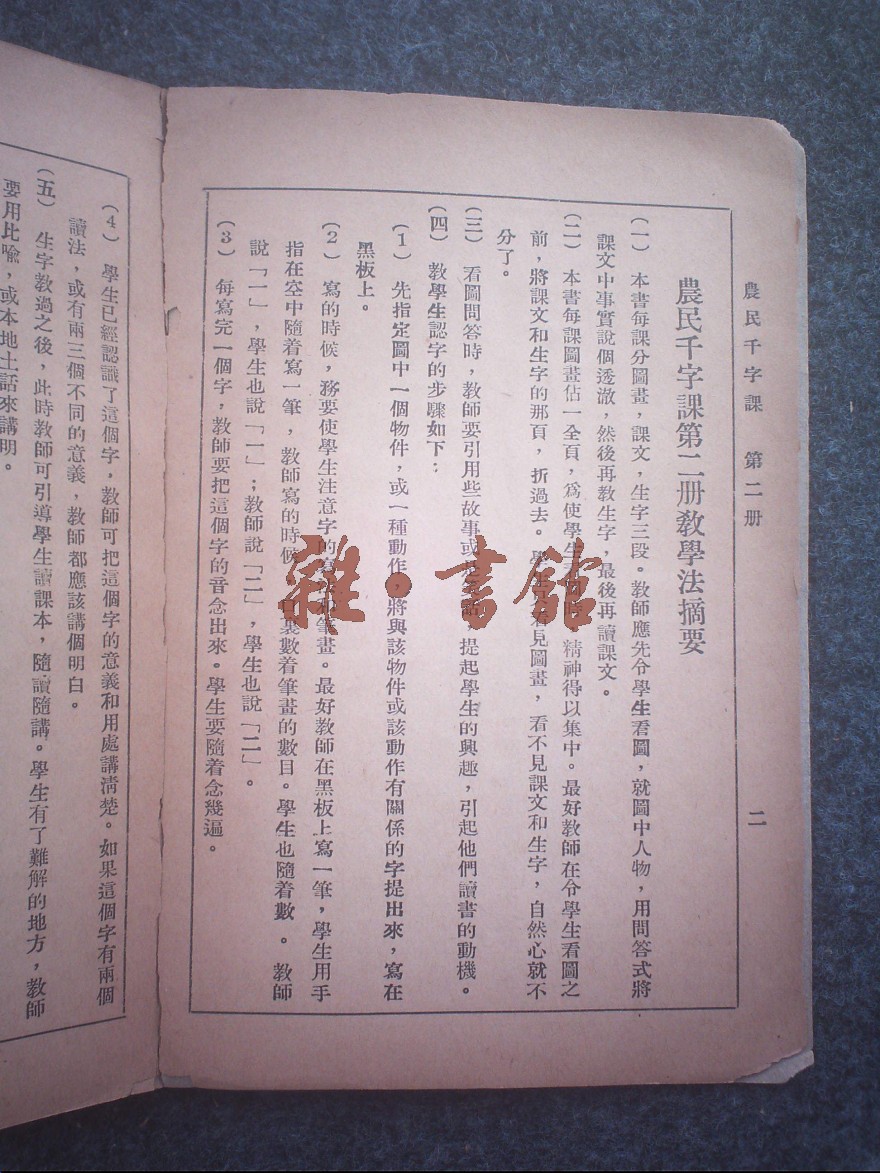 農民千字課　第二册
二
農民千字課第二册敎學法摘要
(一)　本書每課分圖畫，課文，生字三段。敎師應先令學生看圖，就圖中人物，用問答式將
課文中事實說個透澈，然後再敎生字，最後再讀課文。
(二)　本書每課圖畫佔一全頁，爲使學生精神得以集中。最好敎師在令學生看圖之
前，將課文和生字的那頁，折過去。學生看見圖畫，看不見課文和生字，自然心就不
分了。
(三)　看圖問答時，敎師要引用些故事或提起學生的興趣，引起他們讀書的動機。
(四)　敎學生認字的步驟如下：
(1)　先指定圖中一個物件，或一種動作，將與該物件或該動作有關係的字提出來，寫在
黑板上。
(2)　寫的時候，務要使學生注意字的寫筆畫。最好敎師在黑板上寫一筆，學生用手
指在空中隨着寫一筆，敎師寫的時候，口裏數着筆畫的數目。學生也隨着數。敎師
說「一」，學生也說「一」；敎師說「二」，學生也說「二」。
(3)　每寫完一個字，敎師要把這個字的音念出來。學生要隨着念幾遍。
(4)　學生已經認識了這個字，敎師可把這個字的意義和用處講淸楚。如果這個字有兩個
讀法，或有兩三個不同的意義，敎師都應該講個明白。
(五)　生字敎過之後，此時敎師可引導學生讀課本，隨讀隨講。學生有了難解的地方，敎師
要用比喩，或本地土話來講明。
雜·書館